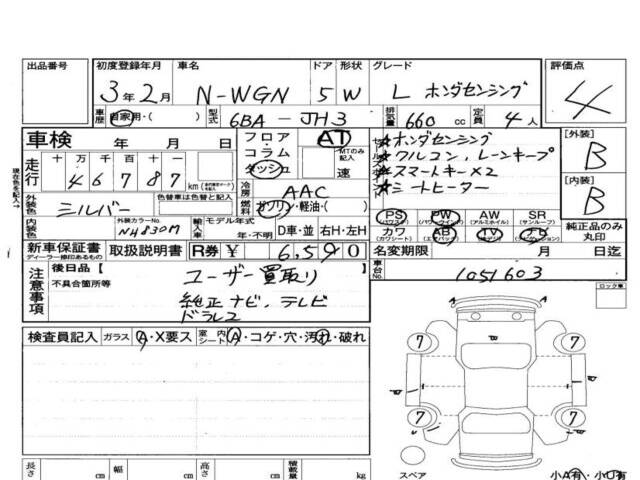 出品番号 初度登録年月 車名 ドア 形状 グレード 評価点
3年2月 N-WGN 5 W L ホンダセンシング 4
車歴 自家用・( ) 型式 6BA-JH3 排気量 660 cc 定員 4人
車検 年 月 日 フロア・コラム ダッシュ AT MTのみ記入 速
走行 十万千百十一 46787 km
★ホンダセンシング
★アルコン、レーンキープ
★スマートキー×2
★シートヒーター
[外装] B
[内装] B
外装色 シルバー 色替車は色替と記入 冷房 AAC
燃料 ガソリン・軽油・( )
内装色 外装カラーNo. NH830M 輸入車 モデル年式 年・不明 D車・並 右H・左H
PS (パワーステアリング) PW (パワーウインド) AW (アルミホイル) SR (サンルーフ)
カワ (カワシート) AB (エアバッグ) TV ナビ 純正品のみ丸印
新車保証書 ディーラー捺印あるもの 取扱説明書 R券 ¥ 6,590
名変期限 月 日迄
車台No. 1051603
注意事項 後日品[ ] 不具合箇所等
ユーザー買取り
純正ナビ、テレビ
ドラレコ
ロック車
検査員記入 ガラス A・X要ス 室内シート A・コゲ・穴・汚れ・破れ
7 7
7 7
スペア 小A有・小U有
長さ cm 幅 cm 高さ cm 積載量 kg
現在色を記入→